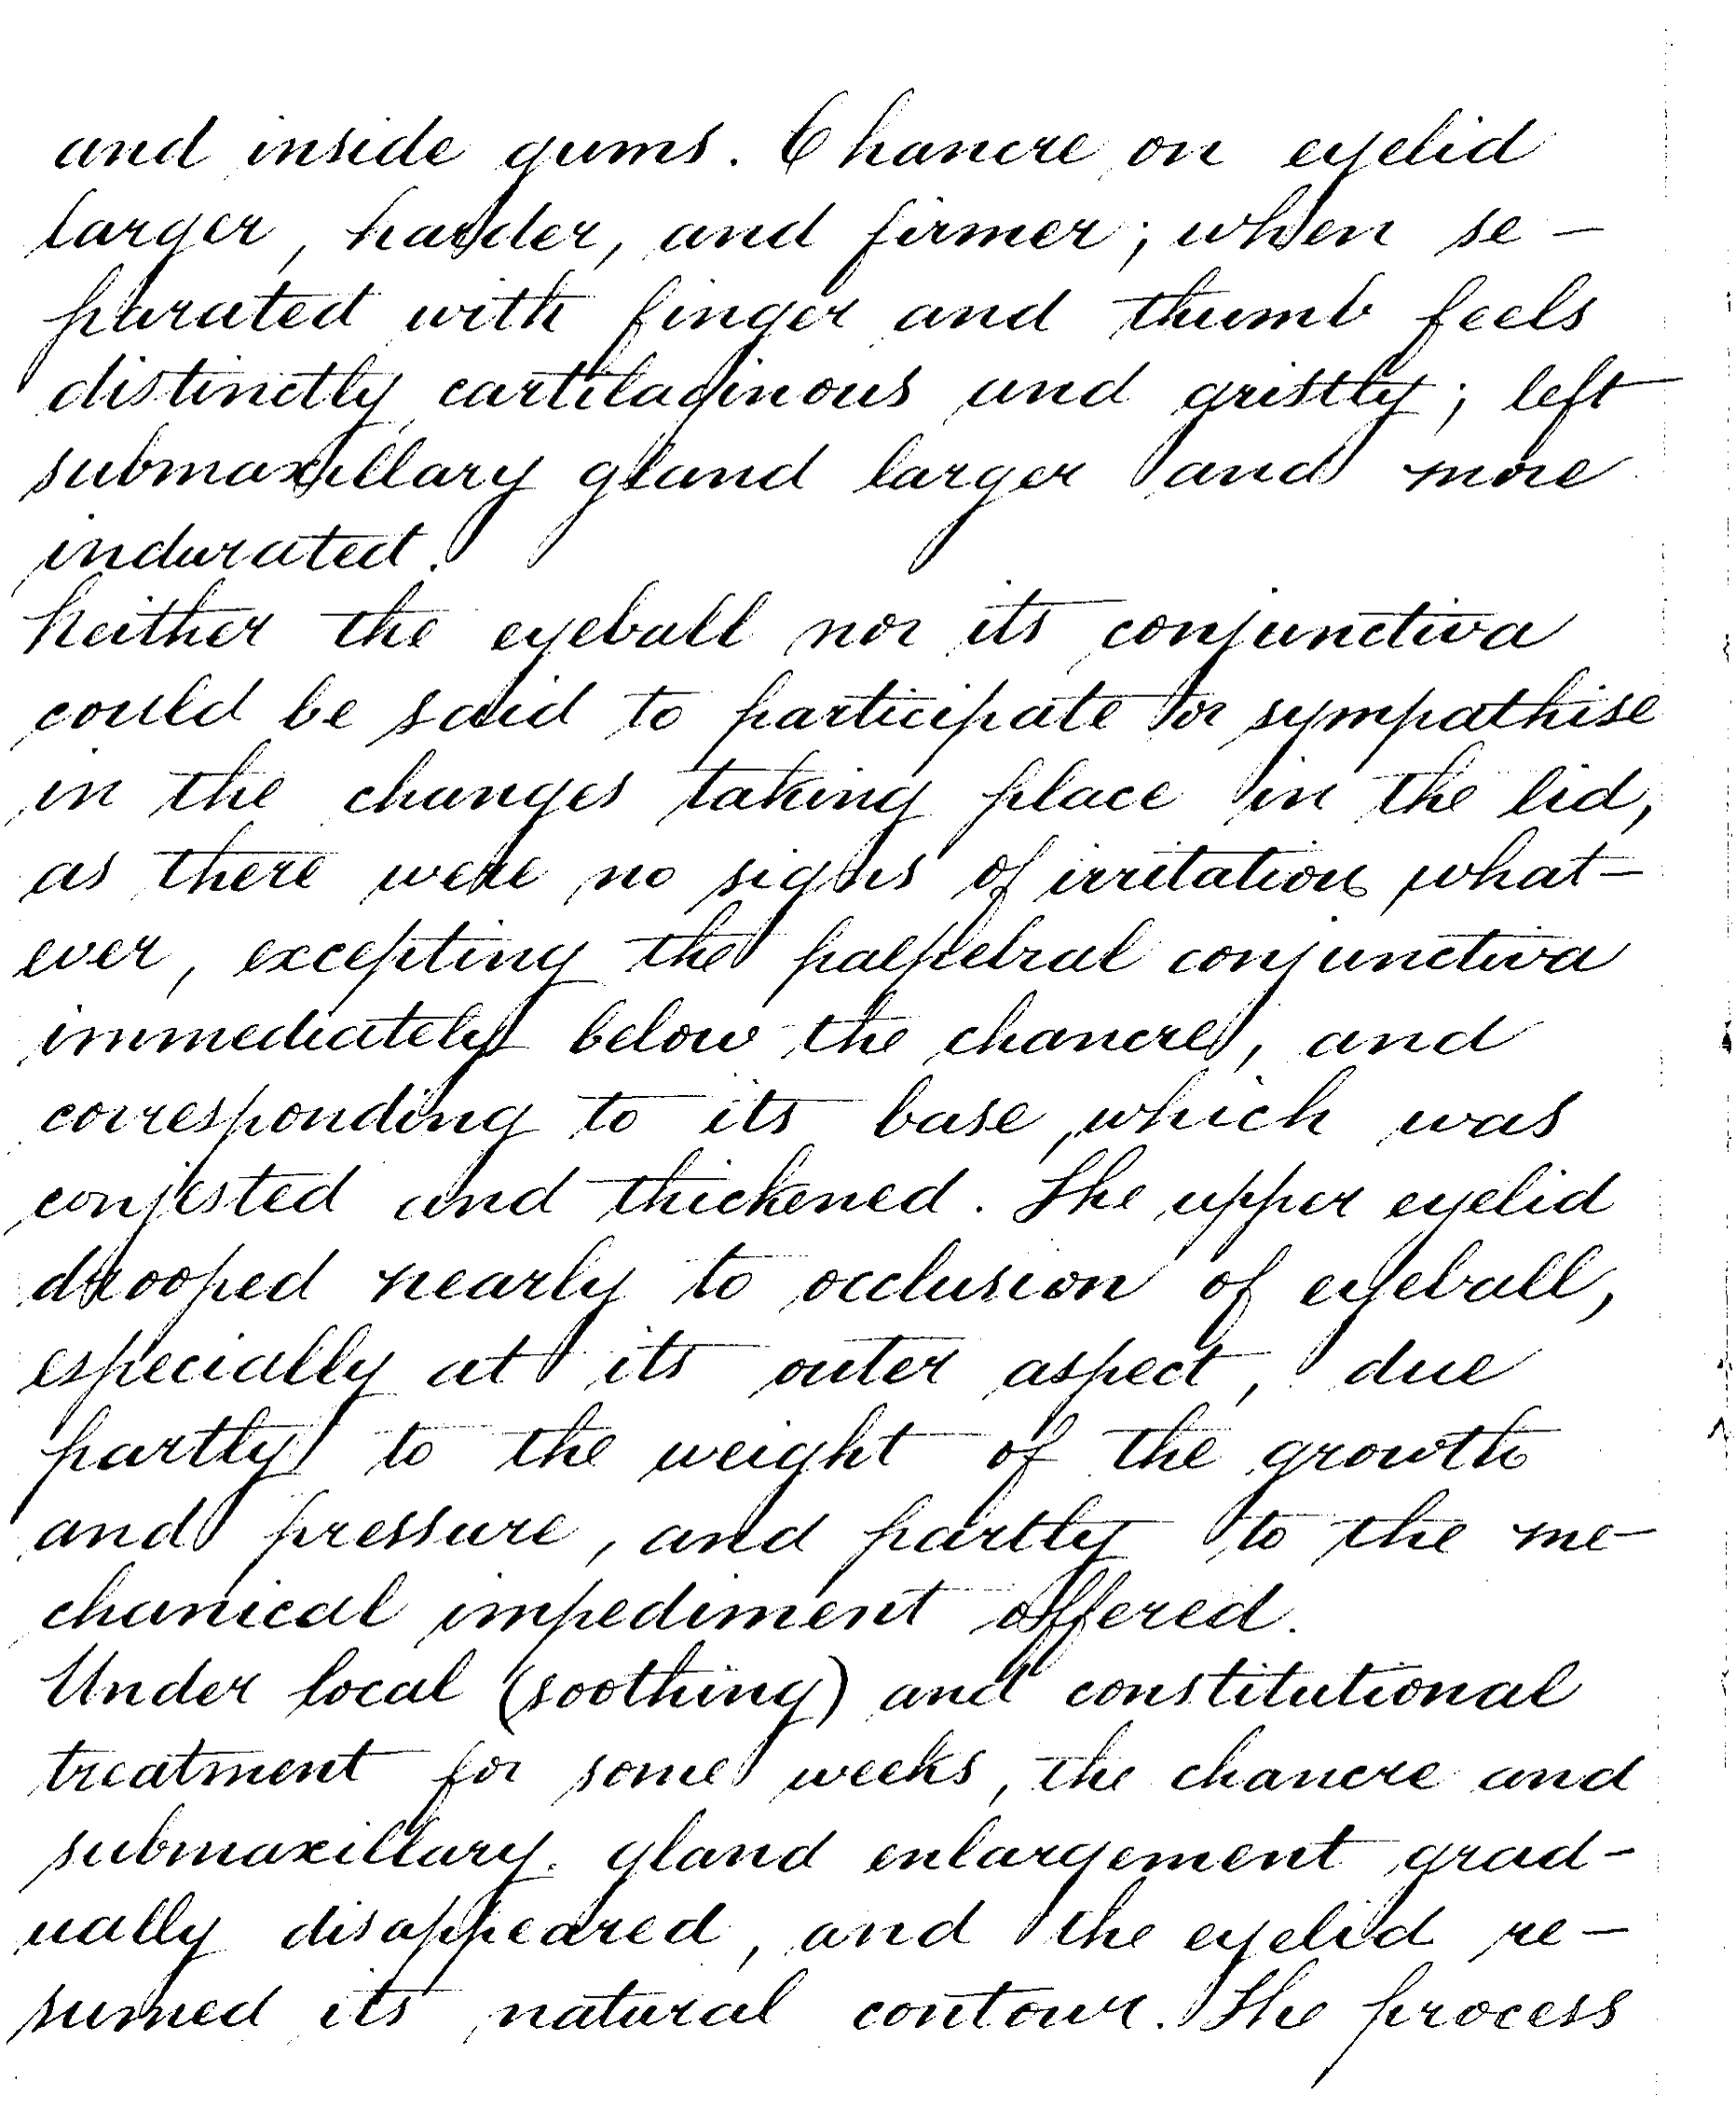 and inside gums. Chancre on eyelid
larger, harder, and firmer; when se-
parated with finger and thumb feels
distinctly cartilaginous and gristly; left
submaxillary gland larger and more
indurated.
Neither the eyeball nor its conjunctiva
could be said to participate or sympathise
in the changes taking place in the lid,
as there were no signs of irritation what-
ever, excepting the palpebral conjunctiva
immediately below the chancre, and
corresponding to its base, which was
conjested and thickened. The upper eyelid
drooped nearly to occlusion of eyeball,
especially at its outer aspect, due
partly to the weight of the growth
and pressure, and partly to the me-
chanical impediment offered.
Under local (soothing) and constitutional
treatment for some weeks, the chancre and
submaxillary. gland enlargement grad-
ually disappeared, and the eyelid re-
sumed its natural contour. The process